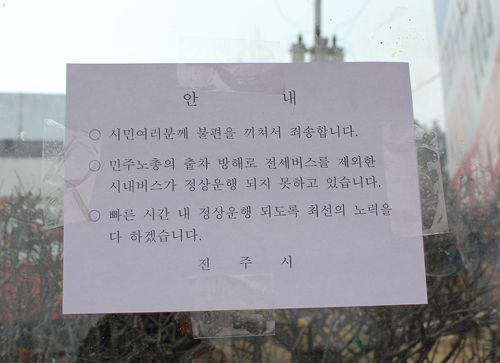 안 내
○ 시민여러분께 불편을 끼쳐서 죄송합니다.
○ 민주노총의 출차 방해로 전세버스를 제외한
시내버스가 정상운행 되지 못하고 있습니다.
○ 빠른 시간 내 정상운행 되도록 최선의 노력을
다 하겠습니다.
전 주 시